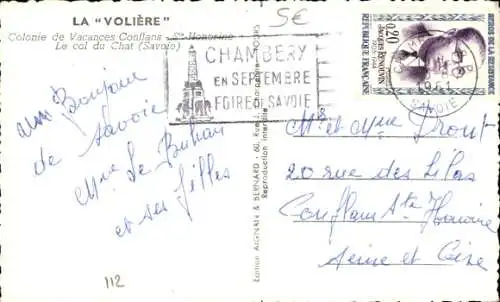 LA "VOLIÈRE"
Colonie de Vacances Conflans - Ste-Honorine
Le col du Chat (Savoie)
5€
CHAMBERY
EN SEPTEMBRE
FOIRE DE SAVOIE
HÉROS DE LA RÉSISTANCE
0,20
JACQUES RENOUVIN
1905-1944
REPUBLIQUE FRANÇAISE
SAVOIE
Bonjour
de Savoie
Mme Le
et ses filles
112
Edition AIGNAN & BERNARD - 60, Rue
Reproduction interdite
M. et Mme
20 rue des Lilas
Conflans Ste Honorine
Seine et Oise